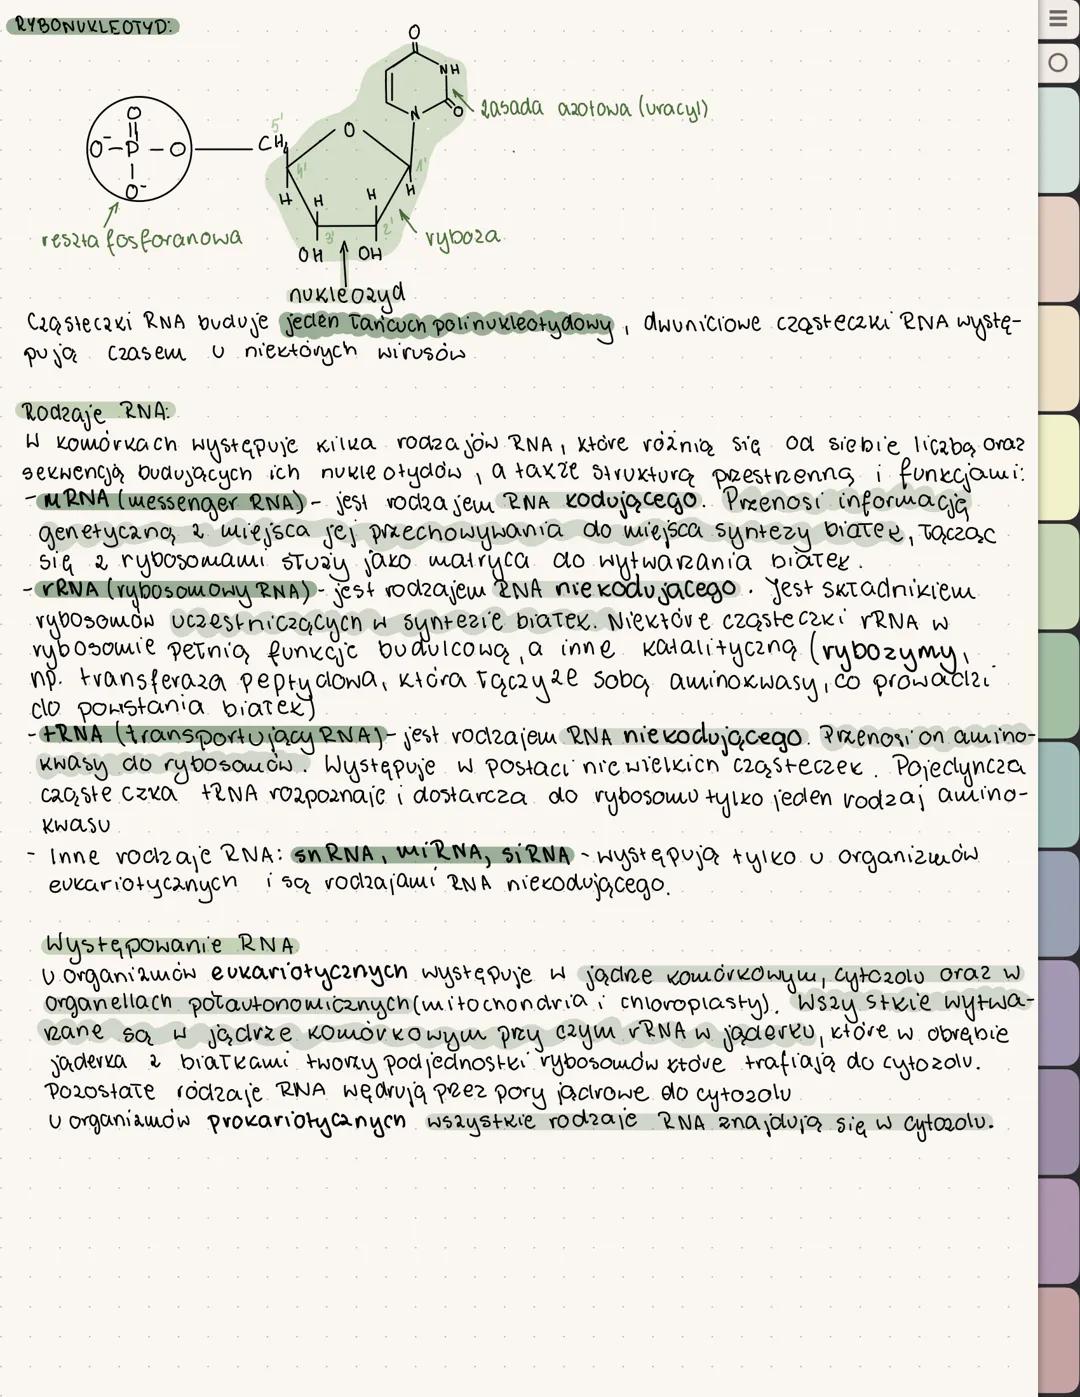 RYBONUKLEOTYD:
O
NH
N
O
zasada azotowa (uracyl)
O
O⁻-P-O
O⁻
5'
CH₂
O
4'
1'
H
H
H
H
3'
2'
OH
OH
reszta fosforanowa
ryboza
nukleozyd
Cząsteczki RNA buduje jeden łańcuch polinukleotydowy, dwuniciowe cząsteczki RNA wystę-
pują czasem u niektórych wirusów
Rodzaje RNA:
W komórkach występuje kilka rodzajów RNA, które różnią się od siebie liczbą oraz
sekwencją budujących ich nukleotydów, a także strukturą przestrzenną i funkcjami:
- mRNA (messenger RNA) - jest rodzajem RNA kodującego. Przenosi informację
genetyczną z miejsca jej przechowywania do miejsca syntezy białek, łącząc
się z rybosomami służy jako matryca do wytwarzania białek.
- rRNA (rybosomowy RNA) - jest rodzajem RNA niekodującego. Jest składnikiem
rybosomów uczestniczących w syntezie białek. Niektóre cząsteczki rRNA w
rybosomie pełnią funkcję budulcową, a inne katalityczną (rybozymy,
np. transferaza peptydowa, która łączy ze sobą aminokwasy, co prowadzi
do powstania białek)
- tRNA (transportujący RNA) - jest rodzajem RNA niekodującego. Przenosi on amino-
kwasy do rybosomów. Występuje w postaci niewielkich cząsteczek. Pojedyncza
cząsteczka tRNA rozpoznaje i dostarcza do rybosomu tylko jeden rodzaj amino-
kwasu
- Inne rodzaje RNA: snRNA, miRNA, siRNA - występują tylko u organizmów
eukariotycznych i są rodzajami RNA niekodującego.
Występowanie RNA
U organizmów eukariotycznych występuje w jądrze komórkowym, cytozolu oraz w
organellach półautonomicznych (mitochondria i chloroplasty). Wszystkie wytwa-
rzane są w jądrze komórkowym przy czym rRNA w jąderku, które w obrębie
jąderka z białkami tworzy podjednostki rybosomów które trafiają do cytozolu.
Pozostałe rodzaje RNA wędrują przez pory jądrowe do cytozolu
U organizmów prokariotycznych wszystkie rodzaje RNA znajdują się w cytozolu.